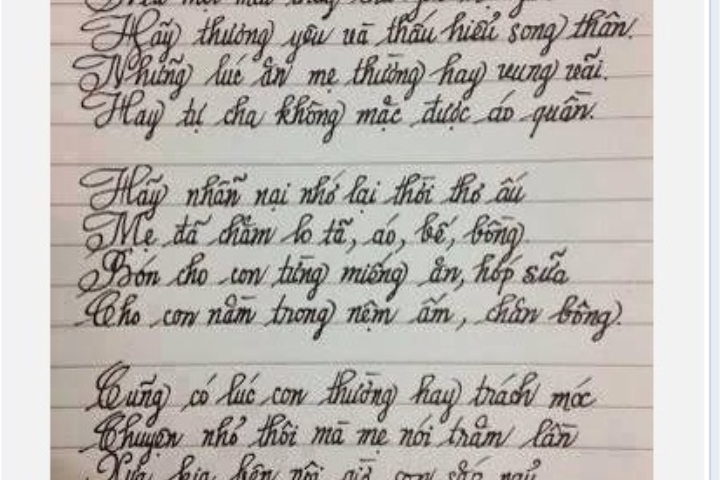 Hãy thương yêu và thấu hiểu song thân.
Những lúc ăn mẹ thường hay vung vãi.
Hay tự cha không mặc được áo quần.
Hãy nhẫn nại nhớ lại thời thơ ấu
Mẹ đã chăm lo tã, áo, bế, bồng
Bón cho con từng miếng ăn, hớp sữa
Cho con nằm trong nệm ấm, chăn bông.
Cũng có lúc con thường hay trách móc
Chuyện nhỏ thôi mà mẹ nói trăm lần
Xưa kia bên nôi giờ con sắp ngủ